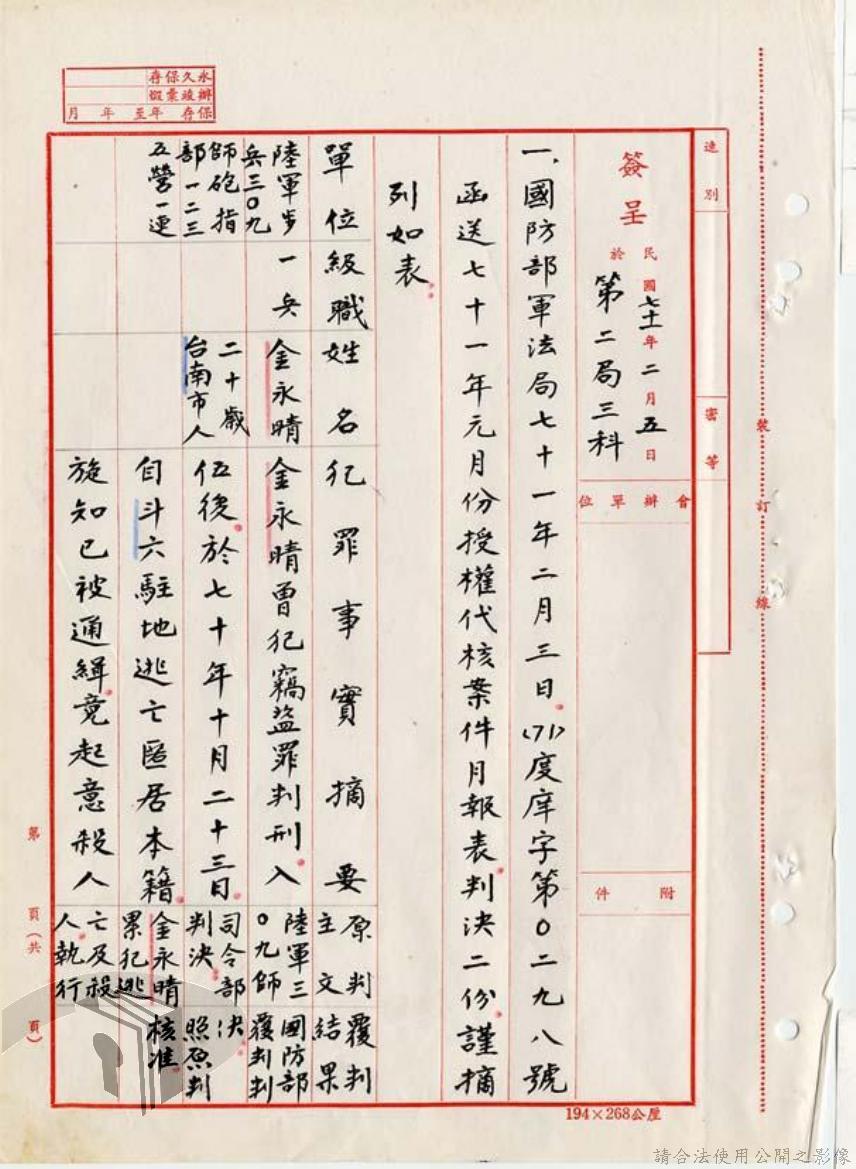 永久保存
辦竣彙燬
保存 年至 年 月
裝訂線
速別
密等
簽呈
於民國七十一年二月五日
第二局三科
會辦單位
附件
一、國防部軍法局七十一年二月三日(71)度庠字第0二九八號
函送七十一年元月份授權代核案件月報表判決二份謹摘
列如表:
單位
級職
姓名
犯罪事實摘要
原判主文
覆判結果
陸軍步
兵三0九
師砲指
部一二三
五營一連
一兵
金永晴
二十歲
台南市人
金永晴曾犯竊盜罪判刑入
伍後於七十年十月二十三日
自斗六駐地逃亡匿居本籍
旋知已被通緝竟起意殺人
陸軍三
0九師
司令部
判決:
金永晴
累犯逃
亡及殺
人執行
國防部
覆判判
決:
照原判
核准
第 頁(共 頁)
194×268公厘
請合法使用公開之影像